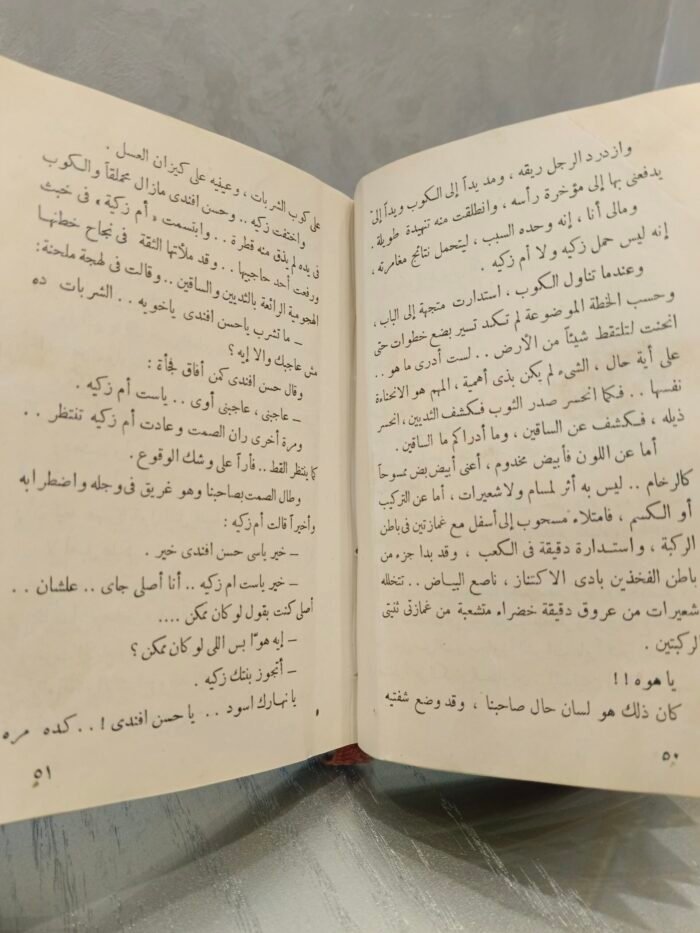 وازدرد الرجل ريقه ، ومد يداً إلى الكوب ويداً إلى
يدفعنى بها إلى مؤخرة رأسه ، وانطلقت منه تنهيدة طويلة .
ومالى أنا ، إنه وحده السبب ، ليتحمل نتائج مغامرته ،
إنه ليس حمل زكيه ولا أم زكيه .
وعندما تناول الكوب ، استدارت متجهة إلى الباب ،
وحسب الخطة الموضوعة لم تكد تسير بضع خطوات حتى
انحنت لتلتقط شيئاً من الأرض . . لست أدرى ما هو . .
على أية حال ، الشىء لم يكن بذى أهمية ، المهم هو الانحناءة
نفسها . . فكما انحسر صدر الثوب فكشف الثديين ، انحسر
ذيله ، فكشف عن الساقين ، وما أدراكم ما الساقين .
أما عن اللون فأبيض مخدوم ، أعنى أبيض بض ممسوحاً
كالرخام . . ليس به أثر لمسام ولا شعيرات ، أما عن التركيب
أو الكسم ، فامتلاء مسحوب إلى أسفل مع غمازتين فى باطن
الركبة ، واستدارة دقيقة فى الكعب ، وقد بدا جزء من
باطن الفخذين بادى الاكتناز ، ناصع البياض . . تتخلله
شعيرات من عروق دقيقة خضراء متشعبة من غمازتى ثنيتى
الركبتين .
يا هوه ! !
كان ذلك هو لسان حال صاحبنا ، وقد وضع شفتيه
٥٠
على كوب الشربات ، وعينيه على كيزان العسل .
واختفت زكيه . . وحسن افندى مازال محملقاً والكوب
فى يده لم يذق منه قطرة . . وابتسمت « أم زكية » فى خبث
ورفعت أحد حاجبيها . . وقد ملأتها الثقة فى نجاح خطتها
الهجومية الرائعة بالثديين والساقين . . وقالت فى لهجة ملحنة :
– ما تشرب ياحسن افندى ياخويه . . الشربات ده
مش عاجبك والا إيه ؟
وقال حسن افندى كمن أفاق فجأة :
– عاجبنى ، عاجبنى أوى . . ياست أم زكيه .
ومرة أخرى ران الصمت وعادت أم زكيه تنتظر . .
كما ينتظر القط . . فأراً على وشك الوقوع .
وطال الصمت بصاحبنا وهو غريق فى وجله واضطرابه
وأخيراً قالت أم زكيه :
– خير ياسى حسن افندى خير .
– خير ياست ام زكيه . . أنا أصلى جاى . . علشان . .
أصلى كنت بقول لو كان ممكن . . . .
– إيه هوّا بس اللى لو كان ممكن ؟
– أتجوز بنتك زكيه .
يا نهارك اسود . . يا حسن افندى ! . . كده مره
٥١